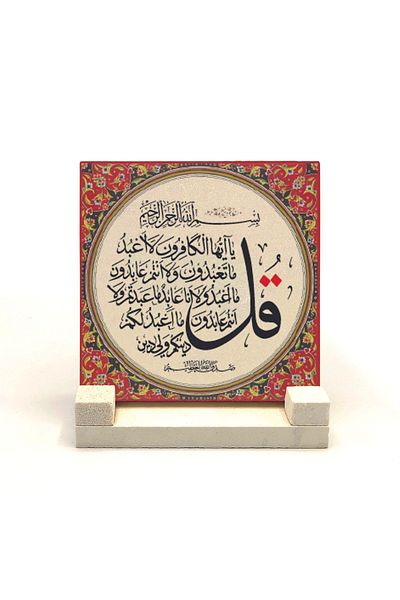 بِسْمِ اللهِ الرَّحْمٰنِ الرَّحِيْمِ
قُلْ
يا أيها الكافرون لا أعبد
ما تعبدون ولا أنتم عابدون
ما أعبد ولا أنا عابد ما عبدتم ولا
أنتم عابدون ما أعبد لكم
دينكم ولي دين
صدق الله العظيم